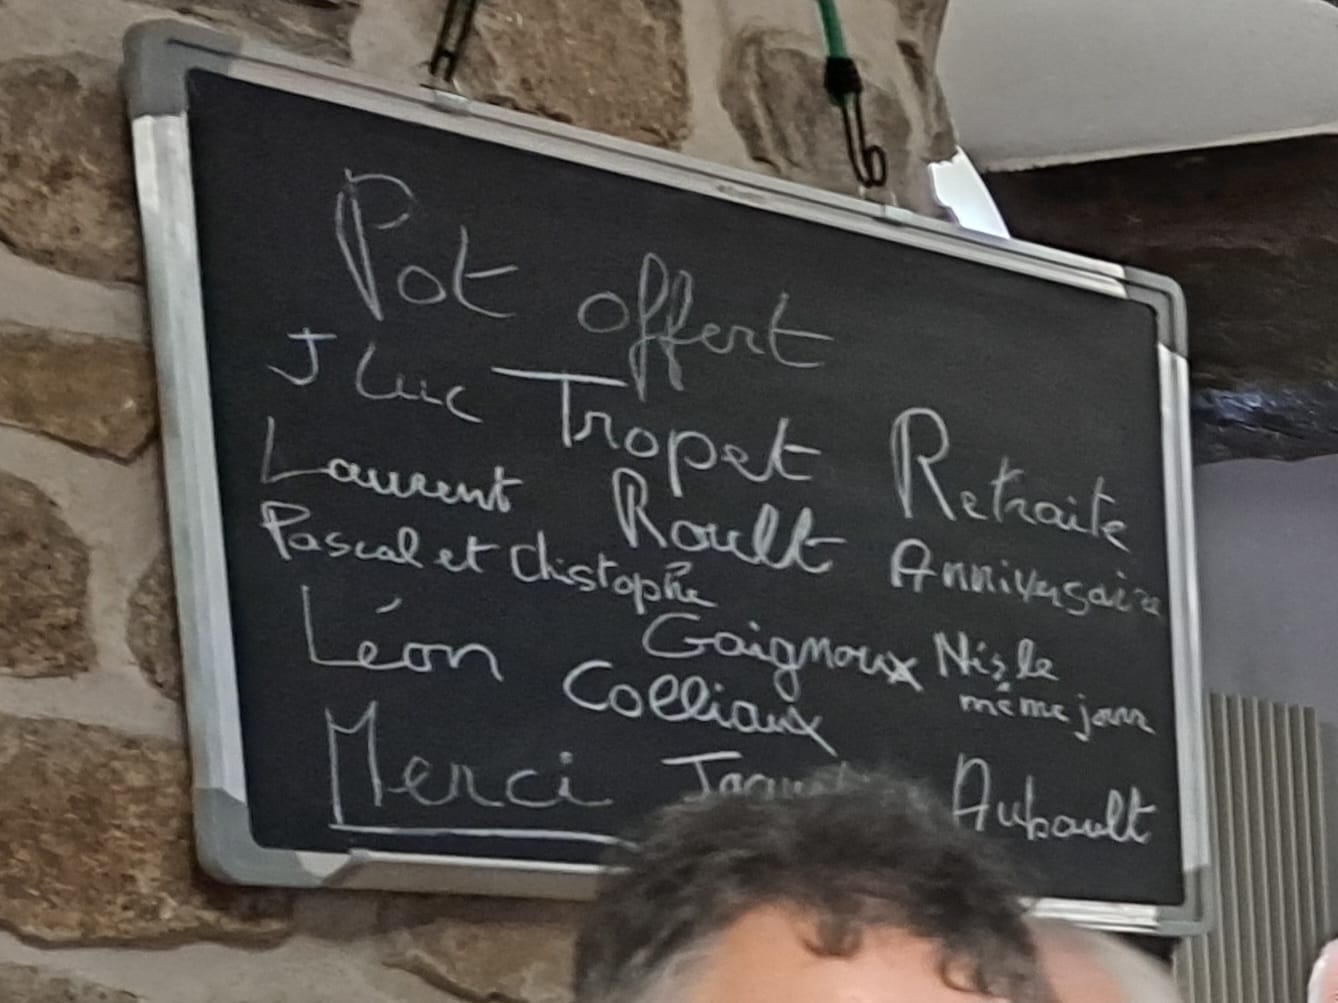 Pot offert
J Luc Tropet Retraite
Laurent Roult Anniversaire
Pascal et Christophe
Gaignoux Nés le
même jour
Léon Colliaux
Merci Aubault